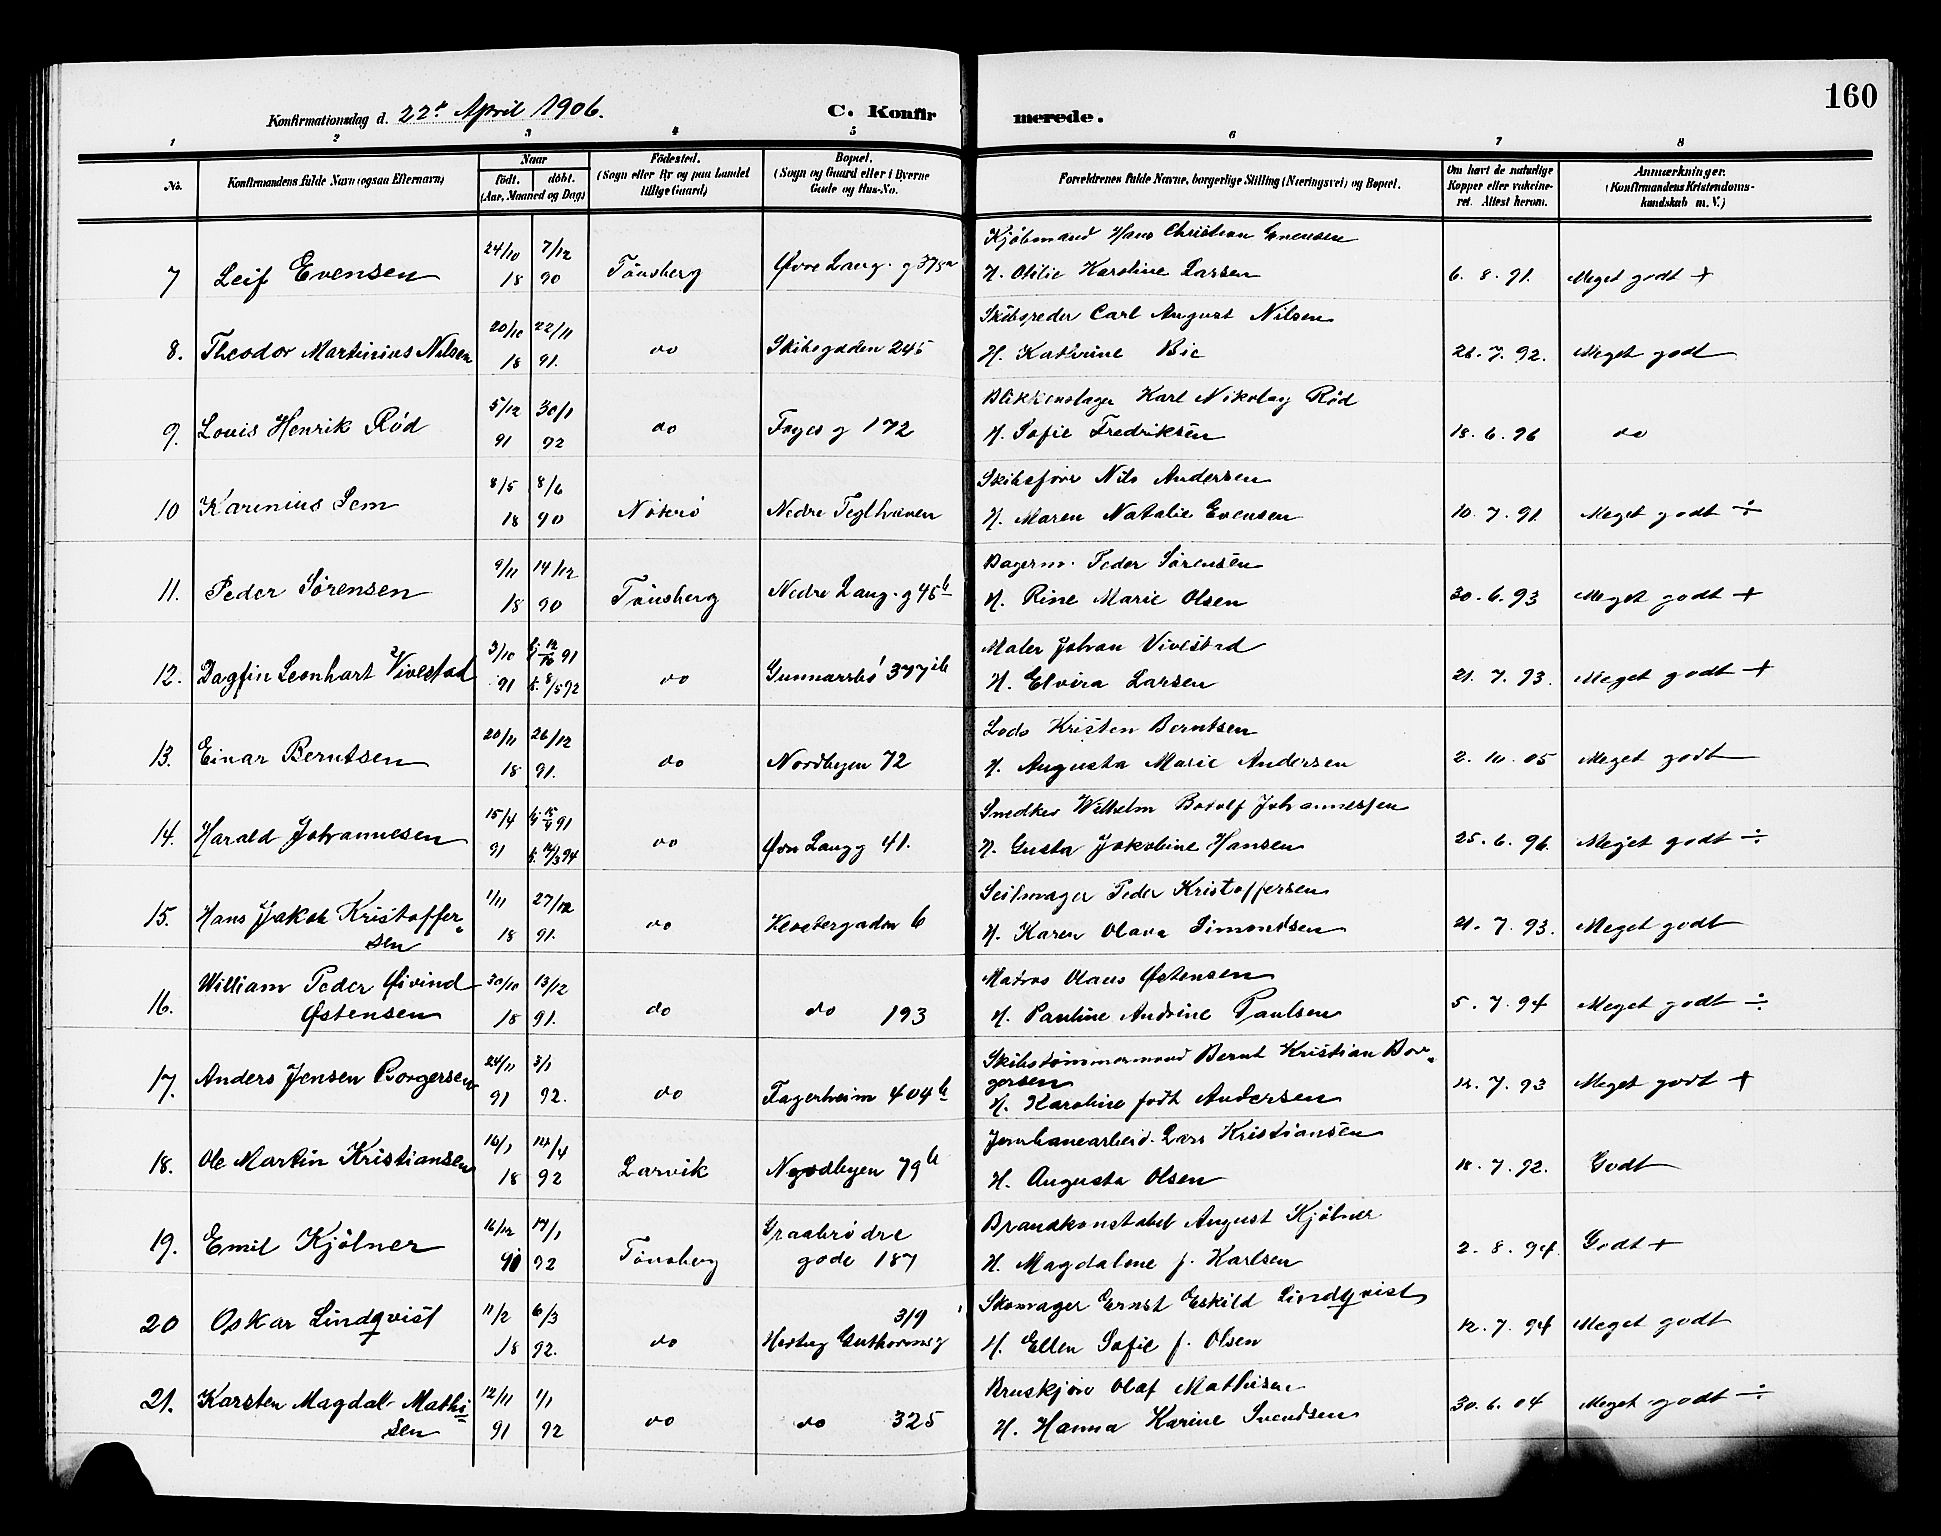 160
Konfirmationsdag d. 22de April 1906. C. Konfir merede.
1 2 3 4 5 6 7 8
No.
Konfirmandens fulde Navn (ogsaa Efternavn)
Naar
födt. döbt.
(Aar, Maaned og Dag)
Födested.
(Sogn eller By og paa Landet
tillige Gaard)
Bopæl.
(Sogn og Gaard eller i Byerne
Gade og Hus-No.
Forældrenes fulde Navne, borgerlige Stilling (Næringsvei) og Bopæl.
Om havt de naturlige
Kopper eller vakcine-
ret. Attest herom.
Anmærkninger.
(Konfirmandens Kristendoms-
kundskab m. V.)
24/10 7/12 Kjöbmand Hans Christian Evensen
7 Leif Evensen 18 90 Tönsberg Øvre Lang. g H. Otilie Karoline Larsen 6. 8. 91. Meget godt +
20/10 22/11 Skibsreder Carl August Nilsen
8. Theodor Martinius Nilsen 18 91. do Skibsgaden 245 H. Kathrine Bie 7. 92. Meget godt
5/12 30/1 Blikkenslager Karl Nikolay Röd
9. Louis Henrik Röd 91 92 do Fayes g 172 H. Sofie Fredriksen 18. 6. 96 do
8/5 8/6 Skibsförer Nils Andersen
10 Karenius Sem 18 90 Nöterö Nedre Teglhaven H. Maren Natalie Evensen 10. 7. 91. Meget godt ÷
9/11 14/12 Bagerm. Peder Sörensen
11. Peder Sörensen 18 90 Tönsberg Nedre Lang. g 45b H. Rine Marie Olsen 30. 6. 93 Meget godt +
3/10 91 Maler Johan Vivestad
12. Dagfin Leonhart Vivestad 91 8/5 92 do Gunnarsbö 377 H. Elvira Larsen 21. 7. 93. Meget godt +
20/11 26/12 Lods Kristen Berntsen
13. Einar Berntsen 18 91. do Nordbyen 72 H. Augusta Marie Andersen 2. 10. 05 Meget godt
15/4 91 Snedker Wilhelm Bodolf Johannessen
14. Harald Johannesen 91 94 do Øvre Langg 41. H. Gusta Jakobine Hansen 25. 6. 96. Meget godt ÷
1/11 27/12 Seilmager Peder Kristoffersen
15. Hans Jakob Kristoffer- 18 91. do 6 H. Karen Olava Simondsen 21. 7. 93. Meget godt
sen
William Peder Øivind 30/10 13/12 Matros Olaus Østensen
16. Østensen 18 91. do do 193 H. Pauline Andrine Paulsen 5. 7. 94 Meget godt ÷
24/11 3/1 Skibstömmermand Bernt Kristian Bor-
17. Anders Jensen Borgersen gersen
91 92. do Fagerheim 404b H. Karoline födt Andersen 12. 7. 93 Meget godt +
Jernbanearbeid. Lars Kristiansen
18. Ole Martin Kristiansen 18 92 Larvik Nordbyen 79b H. Augusta Olsen 18. 7. 92. Godt
16/12 17/1 Graabrödre Brandkonstabel August Kjölner
19. Emil Kjölner 92 Tönsberg gade 187 H. Magdalene f. Karlsen 2. 8. 94. Godt +
11/2 6/3 319 Skomager Ernst Eskild Lindqvist
20 Oskar Lindqvist 18 92. do Hertug Guthormsg H. Ellen Sofie f. Olsen 12. 7. 94 Meget godt
12/11 1/1 Olaf Mathisen
21. Karsten Magdal. Mathi- 91 92 do do 325 H. Hanna Karine Svendsen 30. 6. 04 Meget godt ÷
sen